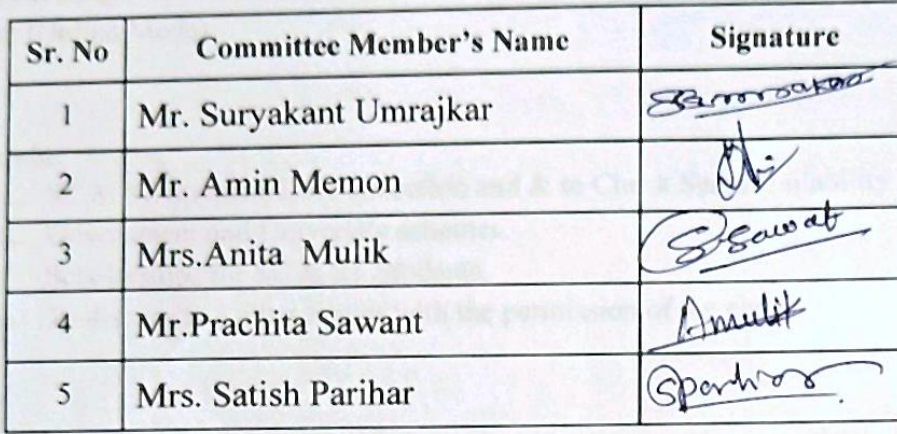 Sr. No Committee Member's Name Signature
1 Mr. Suryakant Umrajkar
2 Mr. Amin Memon
3 Mrs.Anita Mulik Sawat
4 Mr.Prachita Sawant Amulik
5 Mrs. Satish Parihar
with the permission of